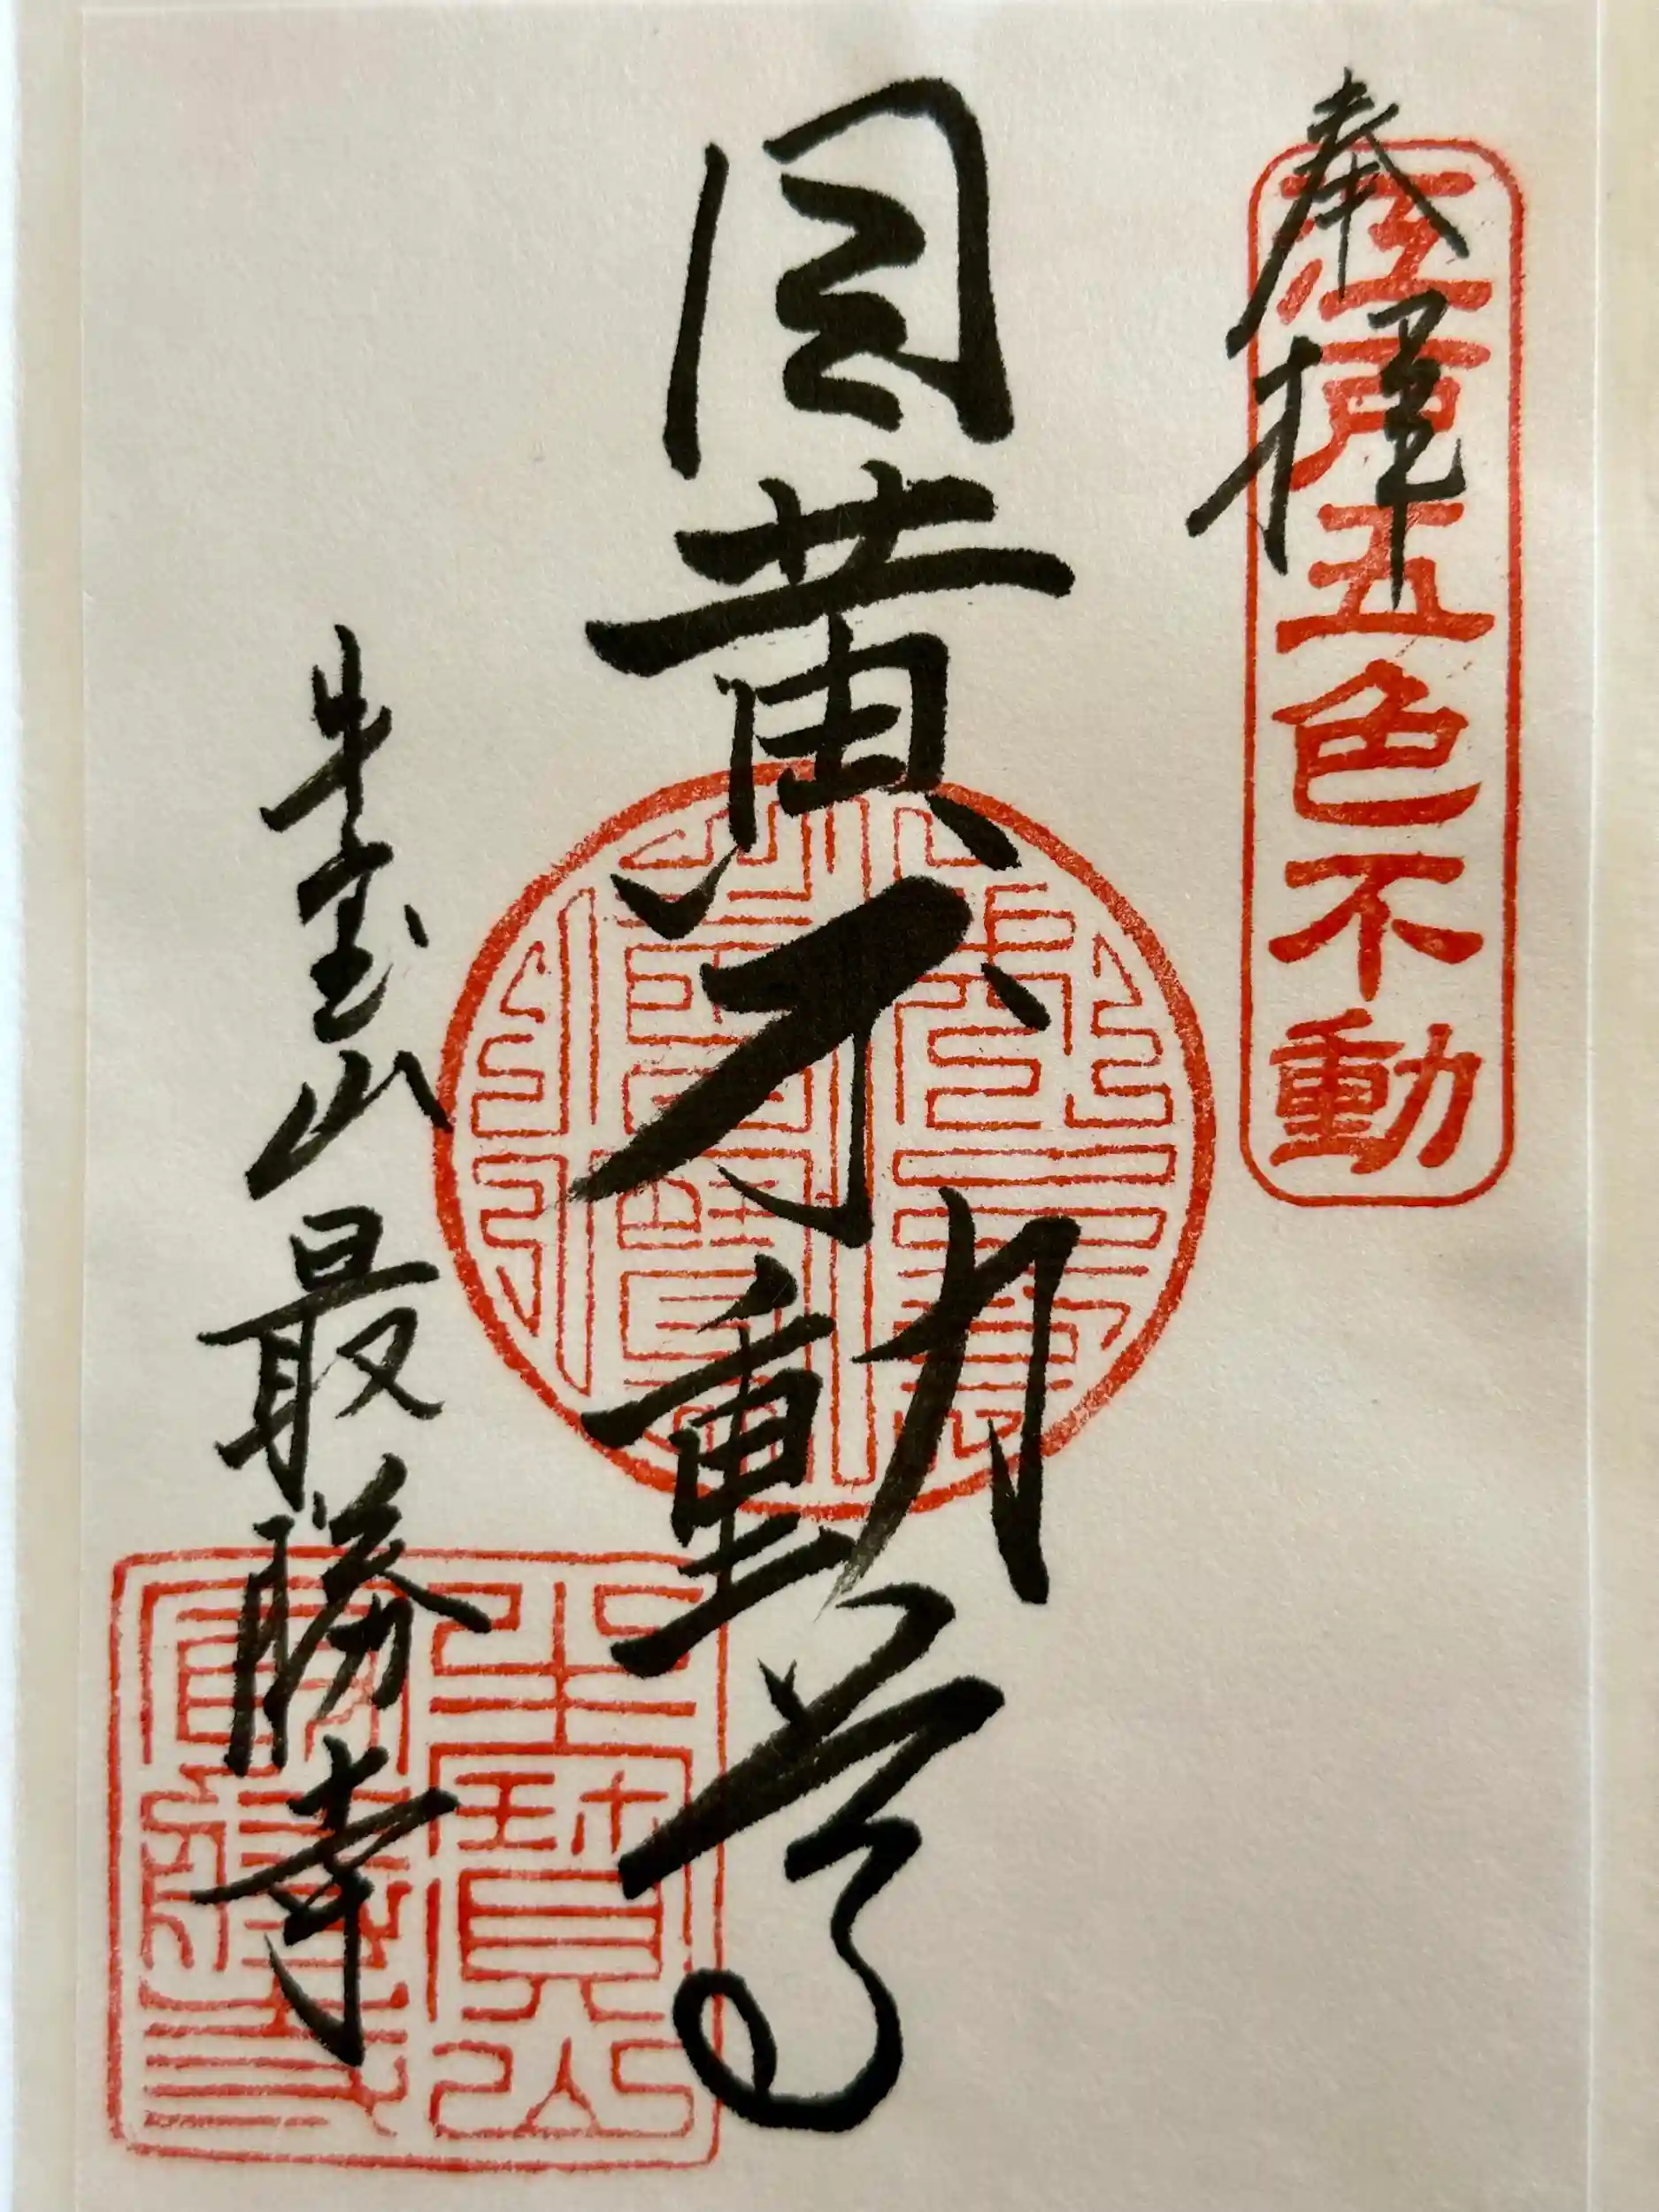 奉拝
江戸五色不動
目黄不動尊
牛宝山最勝寺
牛寶山